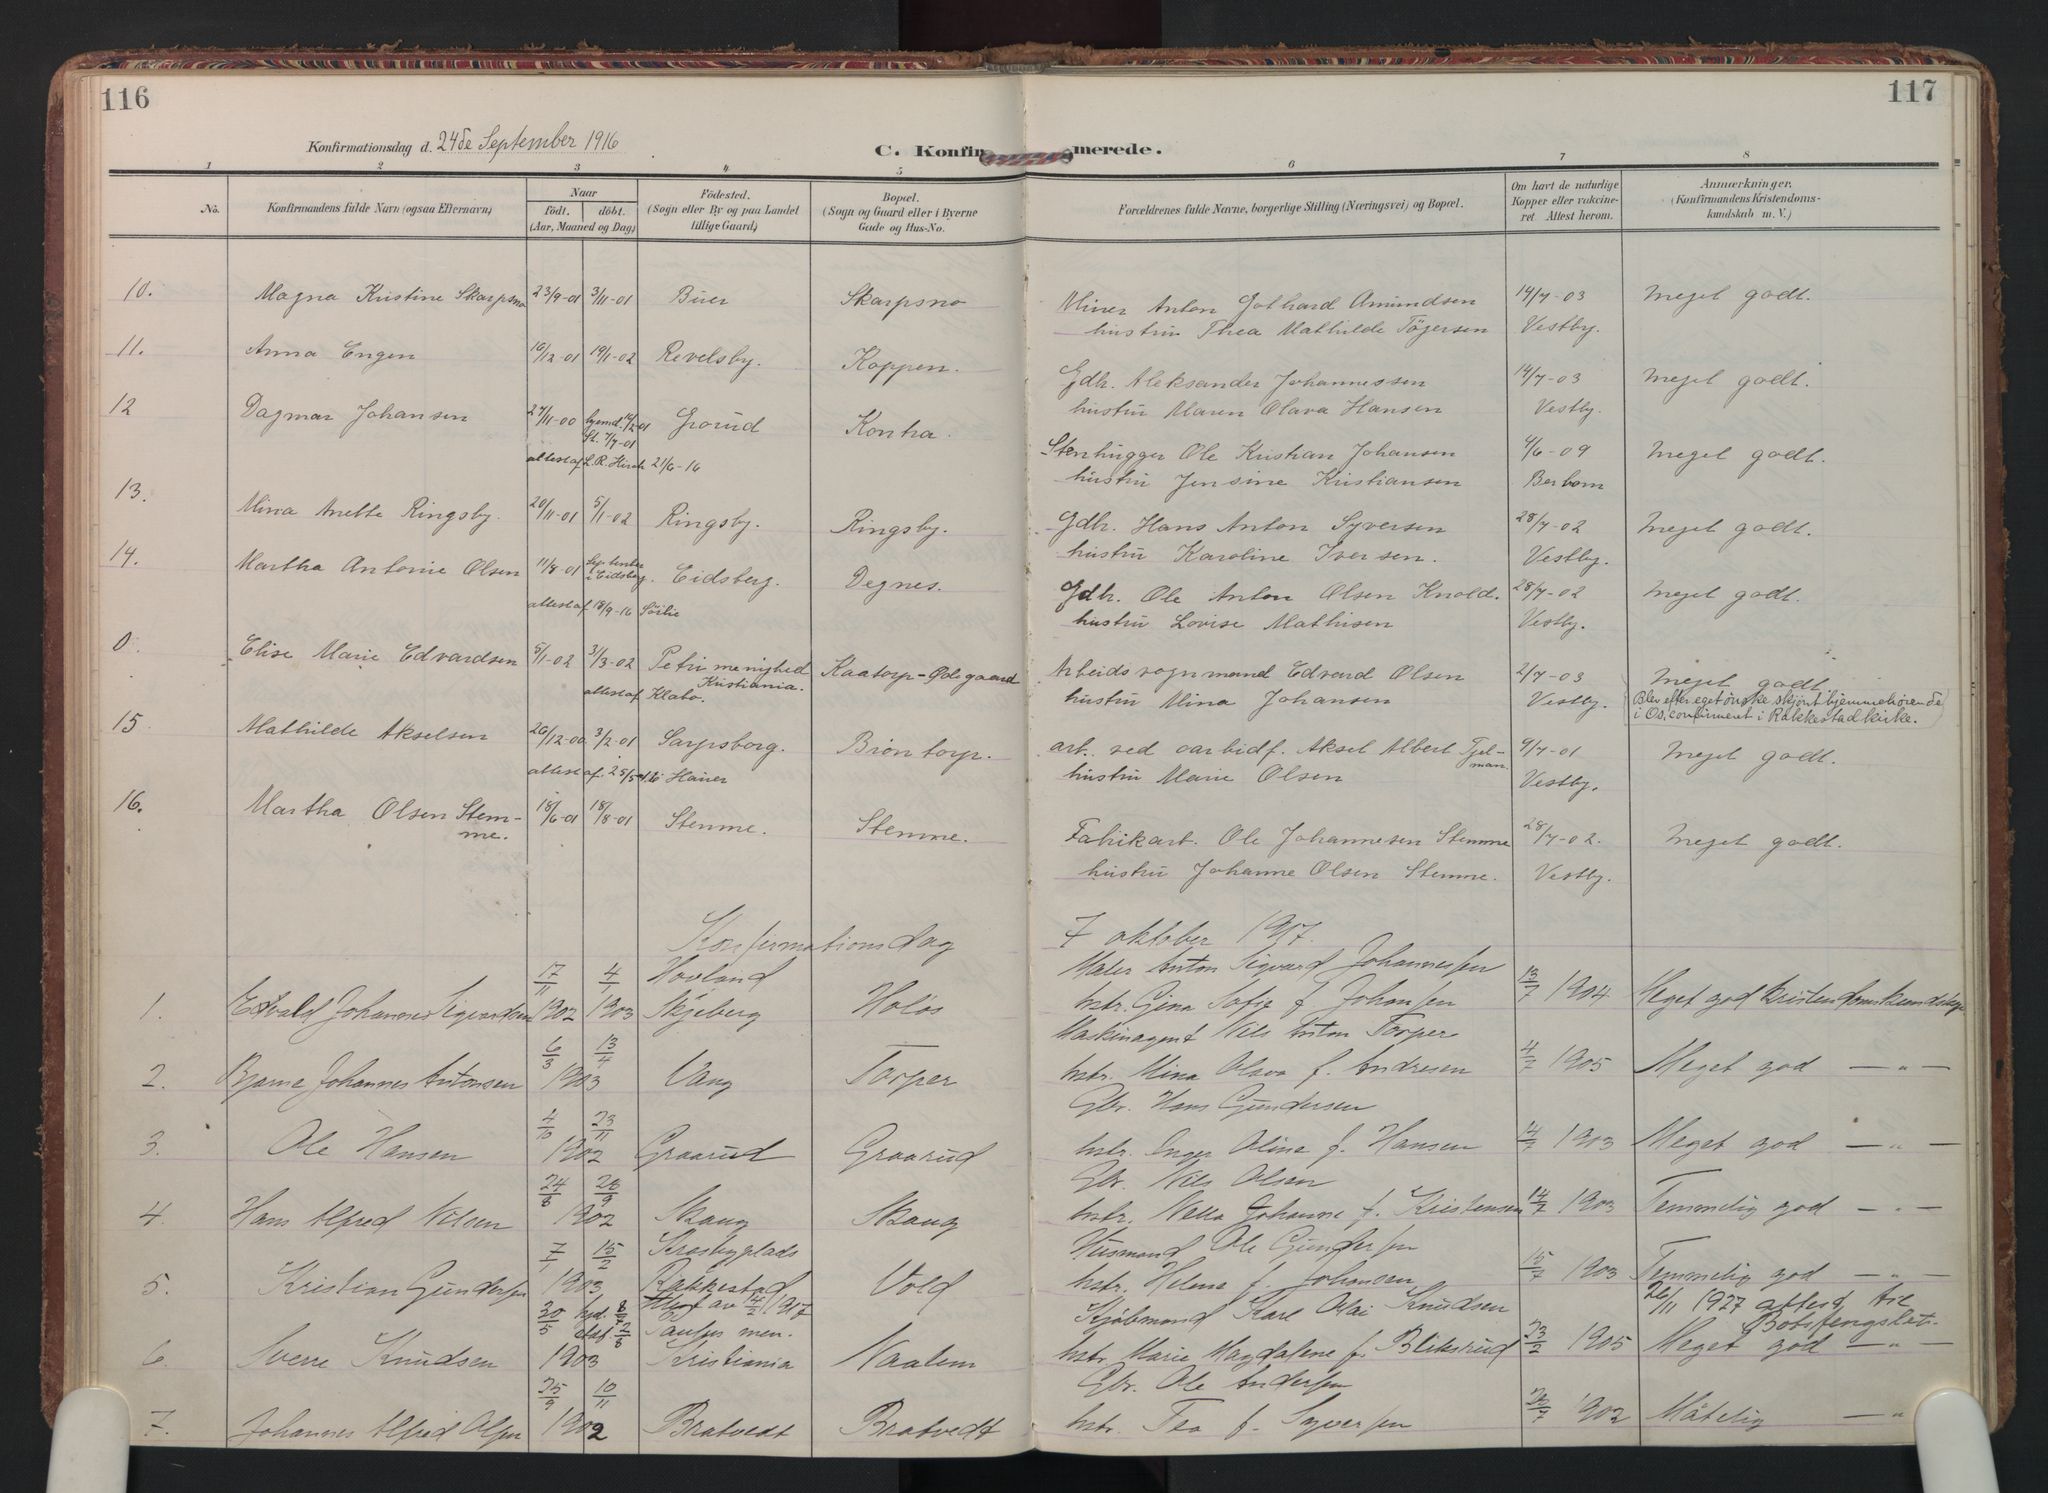 116
117
Konfirmationsdag d. 24de September 1916
C. Konfir merede.
1 2 3 4 5 6 7 8
No.
Konfirmandens fulde Navn (ogsaa Efternavn)
Naar
födt. döbt.
(Aar, Maaned og Dag)
Födested.
(Sogn eller By og paa Landet
tillige Gaard)
Bopæl.
(Sogn og Gaard eller i Byerne
Gade og Hus-No.
Forældrenes fulde Navne, borgerlige Stilling (Næringsvei) og Bopæl.
Om havt de naturlige
Kopper eller vakcine-
ret. Attest herom.
Anmærkninger.
(Konfirmandens Kristendoms-
kundskab m. V.)
10. Magna Kristine Skarpsno 23/9-01 3/11-01 Buer Skarpsno Miner Anton Gothard Amundsen 14/7-03 Meget godt.
hustru Thea Mathilde Tögersen Vestby.
11. Anna Engen 16/12-01 19/1-02 Revelsby. Koppen. Gdb. Aleksander Johannessen 14/7-03 Meget godt.
hustru Maren Olava Hansen Vestby.
12 Dagmar Johansen 27/11-00 hjemd. 14/2-01 Grorud Kontra. Stenhugger Ole Kristian Johansen 4/6-09 Meget godt.
St. 7/7-01
attest af L.R. Hirsch 21/6-16 hustru Jensine Kristiansen Berbom
13. Mina Anette Ringsby. 20/11-01 5/1-02 Ringsby. Ringsby. Gdb. Hans Anton Syversen 28/7-02 Meget godt.
hustru Karoline Iversen. Vestby.
14. Martha Antonie Olsen 11/8-01 September i Eidsberg. Eidsberg. Degnes. Gdb. Ole Anton Olsen Knold. 28/7-02 Meget godt.
attest af 18/9-16 Sörlie hustru Lovise Mathisen Vestby.
0. Elise Marie Edvardsen 5/1-02 31/3-02 Petri menighed Kaatorp-Ödegaard Arbeidsvognmand Edvard Olsen 2/7-03 Meget godt.
Kristiania.
attest af Klabo. hustru Mina Johansen Vestby. (Blev efter eget önske skjönt hjemmehörende
i Os, confirment i Rakkestad kirke.)
15 Mathilde Akselsen 26/12-00 3/2-01 Sarpsborg. Bröntorp. arb. ved carbidf. Aksel Albert Tjel-
man. 9/7-01 Meget godt.
attest af. 25/5-16 Hauer hustru Marie Olsen Vestby.
16. Martha Olsen Stem-
me. 18/6-01 18/8-01 Stemme. Stemme. Fabrikarb. Ole Johannesen Stemme 28/7-02. Meget godt.
hustru Johanne Olsen Stemme. Vestby.
Konfirmationsdag 7 oktober 1917.
1. Edvald Johannes Sigvardsen 17/11 1902 4/1 1903 Hovland Skjeberg Holös Maler Anton Sigvard Johannessen 13/7 1904 Meget god kristendomskundskap
hstr. Gina Sofie f. Johansen
2. Bjarne Johannes Antonsen 6/3 13/4 1903 Vang Torper Maskinagent Nils Anton Torper 4/7 1905 Meget god — " —
hstr. Mina Olava f. Andresen
3. Ole Hansen 4/10 23/11 1902 Graarud Graarud Gbr. Hans Gundersen 14/7 1903 Meget god — " —
hstr. Inger Olina f. Hansen
4. Hans Alfred Nilsen 24/8 28/9 1902 Skaug Skaug Gbr. Nils Olsen 14/7 1903 Temmelig god — " —
hstr. Nella Johanne f. Kristensen
5. Kristian Gundersen 7/1 15/2 1903 Krosbyplads Rakkestad Vold Husmand Ole Gundersen 15/7 1903 Temmelig god — " —
hstr. Helene f. Johansen
26/11 1927 attest til
Botsfengslet.
6. Sverre Knudsen 30/5 hjd. 8/7 1903 Attest av 14/2 1917 Paulus men. Kristiania Naalem Kjöbmand Karl Olai Knudsen 23/2 1905 Meget god — " —
hstr. Marie Magdalene f. Blikstrud
7. Johannes Alfred Olsen 25/9 10/11 1902 Bratvedt Bratvedt Gbr. Ole Andersen 1902 Måtelig — "
hstr. Tea f. Syversen